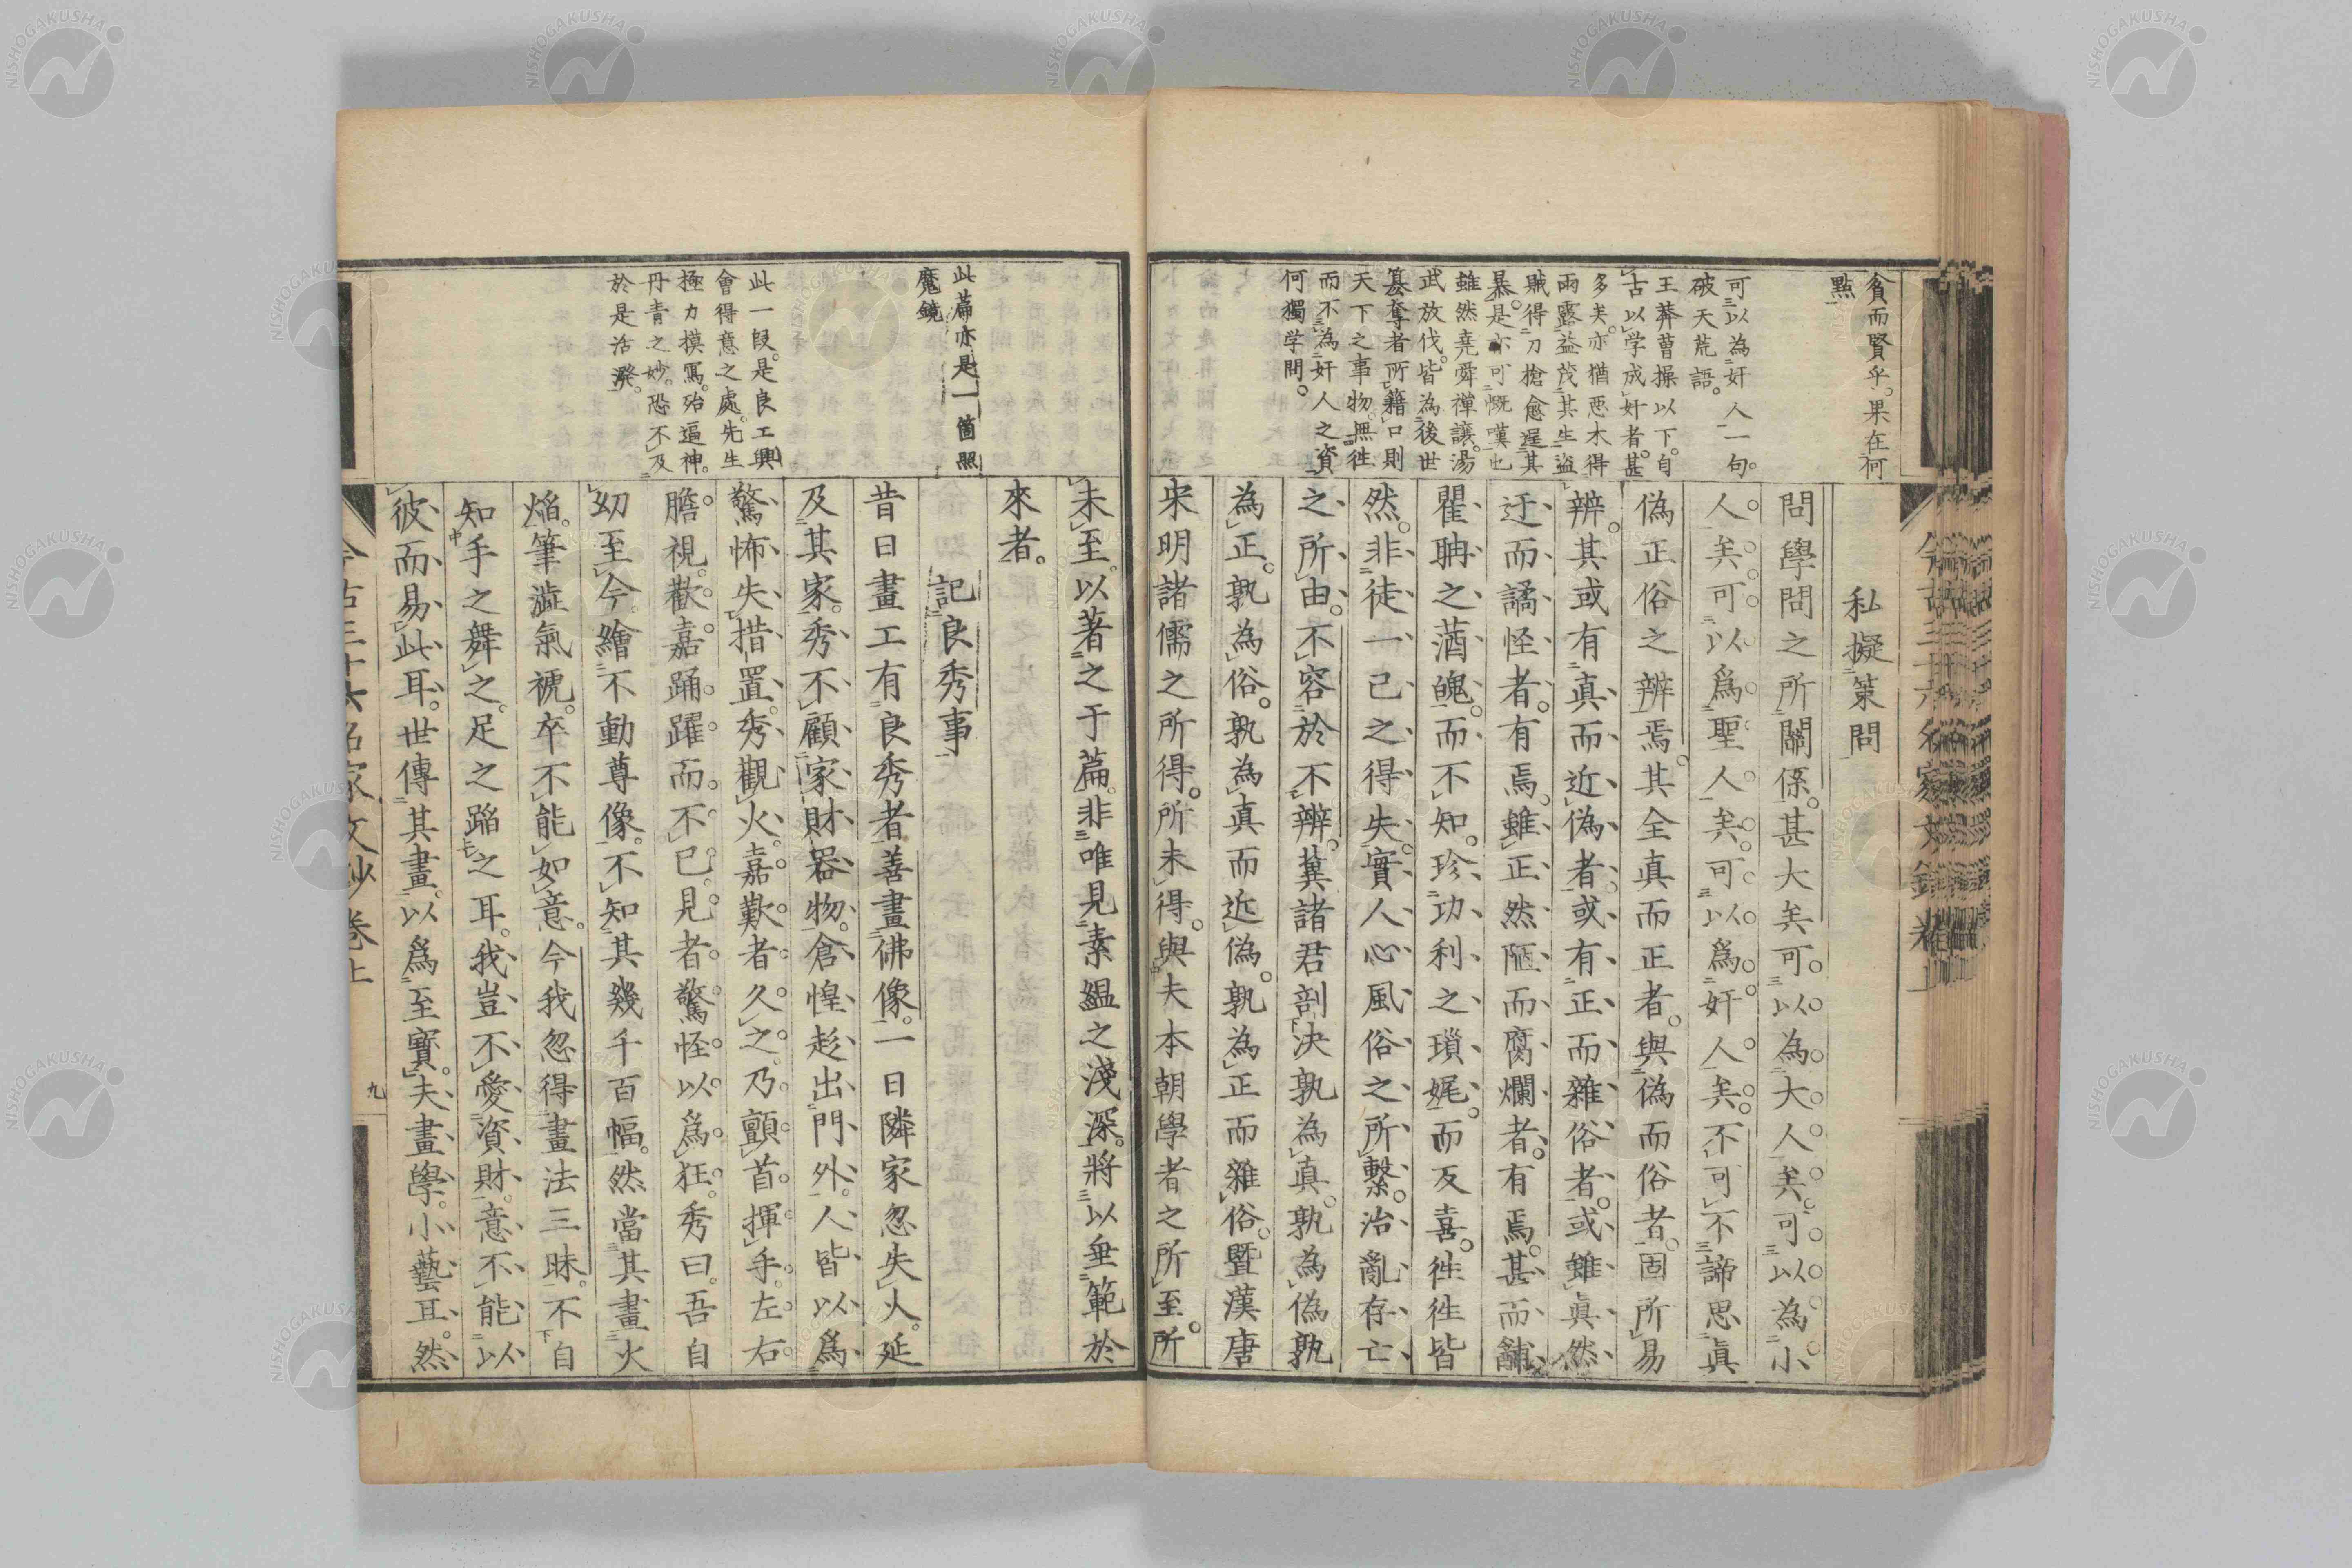 貧而賢乎。果在何
點
可以為奸人一句。
破天荒語。
王莽曹操以下。自
古以学成奸者。甚
多矣。亦猶惡木得
雨露益茂其生盗
賊得刀槍愈逞其
暴。是亦可慨嘆也
雖然堯舜禪讓。湯
武放伐。皆為後世
簒奪者所籍口則
天下之事物。無徃
而不為奸人之資
何獨学問。
私擬策問
問學問之所關係。甚大矣可以為大人矣。可以為小
人。矣可以爲聖人矣。可以爲奸人矣。不可不諦思眞
偽正俗之辨焉。其全真而正者。與偽而俗者。固所易
辨。其或有真而近偽者。或有正而雜俗者。或雖眞然
迂而譎怪者。有焉。雖正然陋而腐爛者。有焉。甚而餔
瞿聃之藟魄。而不知。珍功利之瑣娓。而反喜。徃徃皆
然。非徒一己之得失。實人心風俗之所繫。治亂存亡
之所由。不容於不辨。冀諸君剖決孰為真。孰為偽孰
為正。孰為俗。孰為真而近偽。孰為正而雜俗。暨漢唐
宋明諸儒之所得。所未得。與夫本朝學者之所至。所
未至。以著之于篇。非唯見素縕之淺深。將以垂範於
來者。
此篇亦是一箇照
魔鏡
記良秀事
昔日畫工有良秀者善畫佛像。一日隣家忽失火。延
及其家。秀不顧家財器物。倉惶趍出門外。人皆以爲
驚怖失措置。秀觀火。嘉歎者久之。乃顫首揮手。左右
膽視。歡嘉踊躍而不已。見者驚怪以爲狂。秀曰。吾自
幼至今。繪不動尊像。不知其幾千百幅。然當其畫火
焰。筆澁氣褫。卒不能如意。今我忽得畫法三昧。不自
知手之舞之。足之蹈之耳。我豈不愛資財。意不能以
彼而易此耳。世傳其畫。以爲至寶。夫畫學。小藝耳。然
此一段。是良工興
會得意之處。先生
極力摸寫。殆逼神。
丹青之妙。恐不及
於是活潑。
今古三十六名家文鈔卷上
九